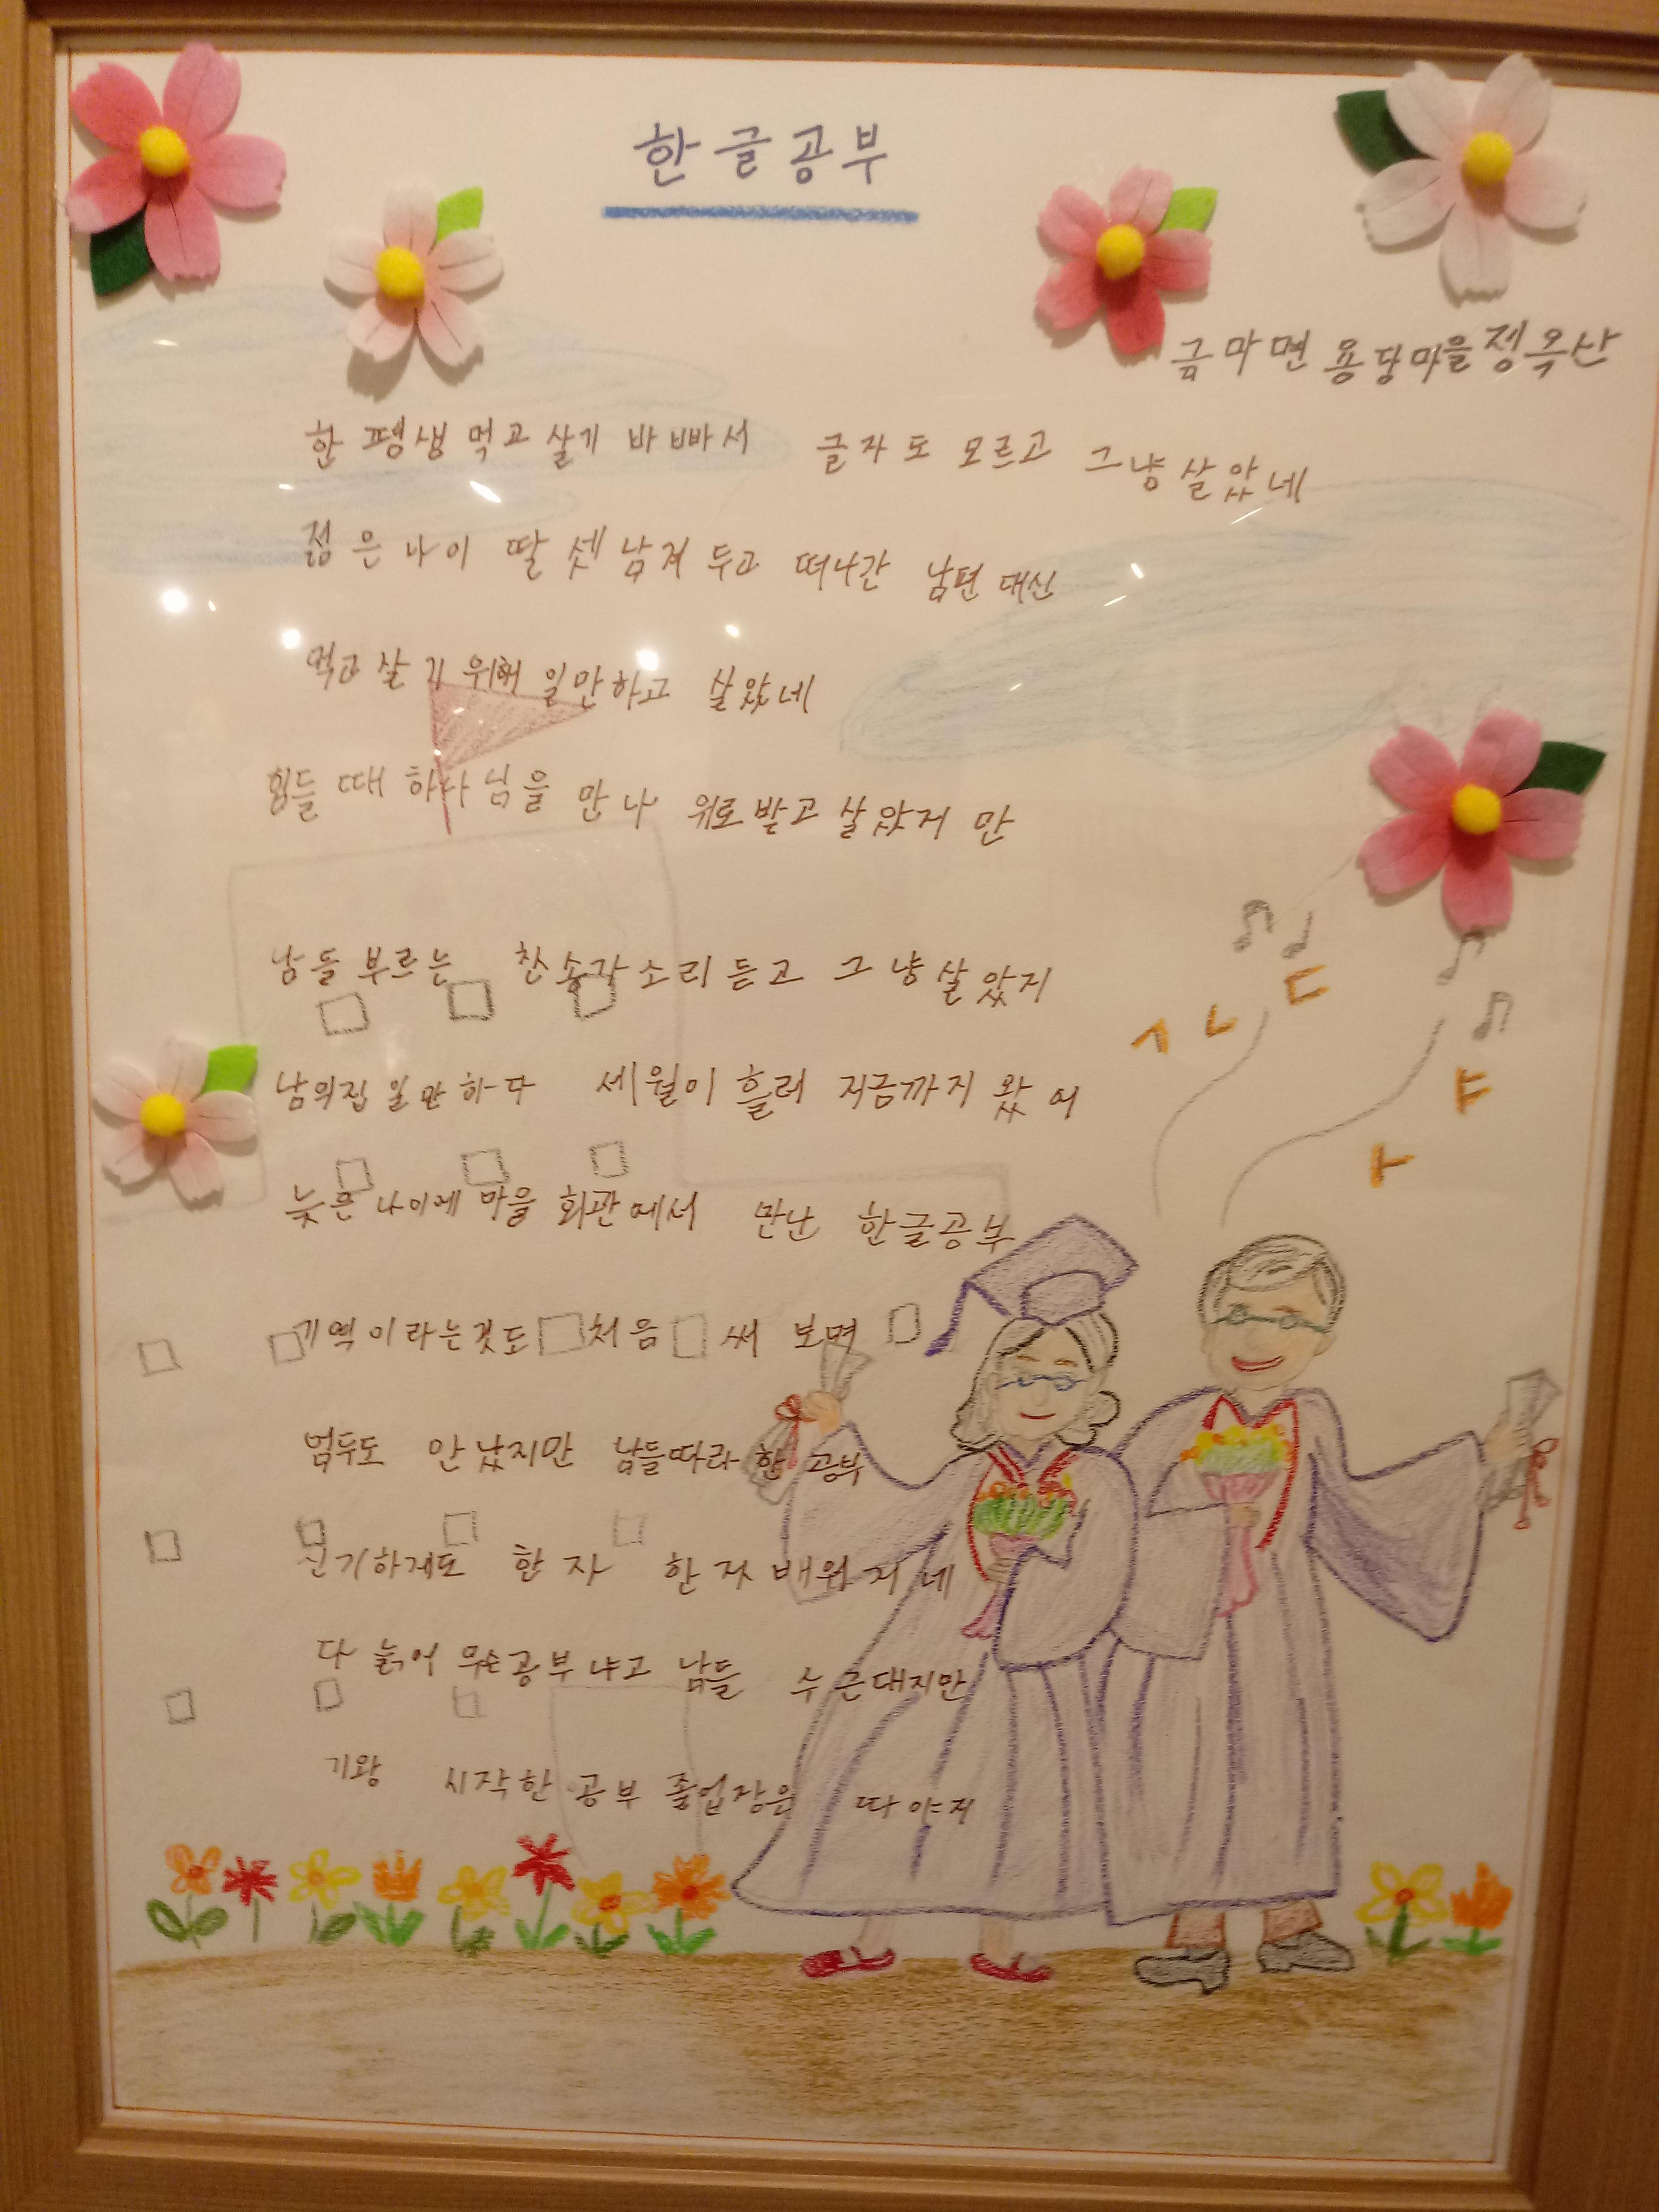 한글공부
금마면 용당마을 정옥산
한 평생 먹고 살기 바빠서 글자도 모르고 그냥 살았네
젊은 나이 딸 셋 남겨 두고 떠나간 남편 대신
먹고 살기 위해 일만하고 살았네
힘들 때 하나님을 만나 위로받고 살았지 만
남들 부르는 찬송가 소리 듣고 그냥 살았지
남의집 일만 하다 세월이 흘러 지금까지 왔어
늦은 나이에 마을 회관에서 만난 한글공부
기역이라는것도 처음 써 보며
엄두도 안났지만 남들따라 한 공부
신기하게도 한 자 한 자 배워지네
다 늙어 무슨공부냐고 남들 수근대지만
기왕 시작한 공부 졸업장은 따야지
ㅅ ㄴ ㄷ
ㅠ
ㅜ